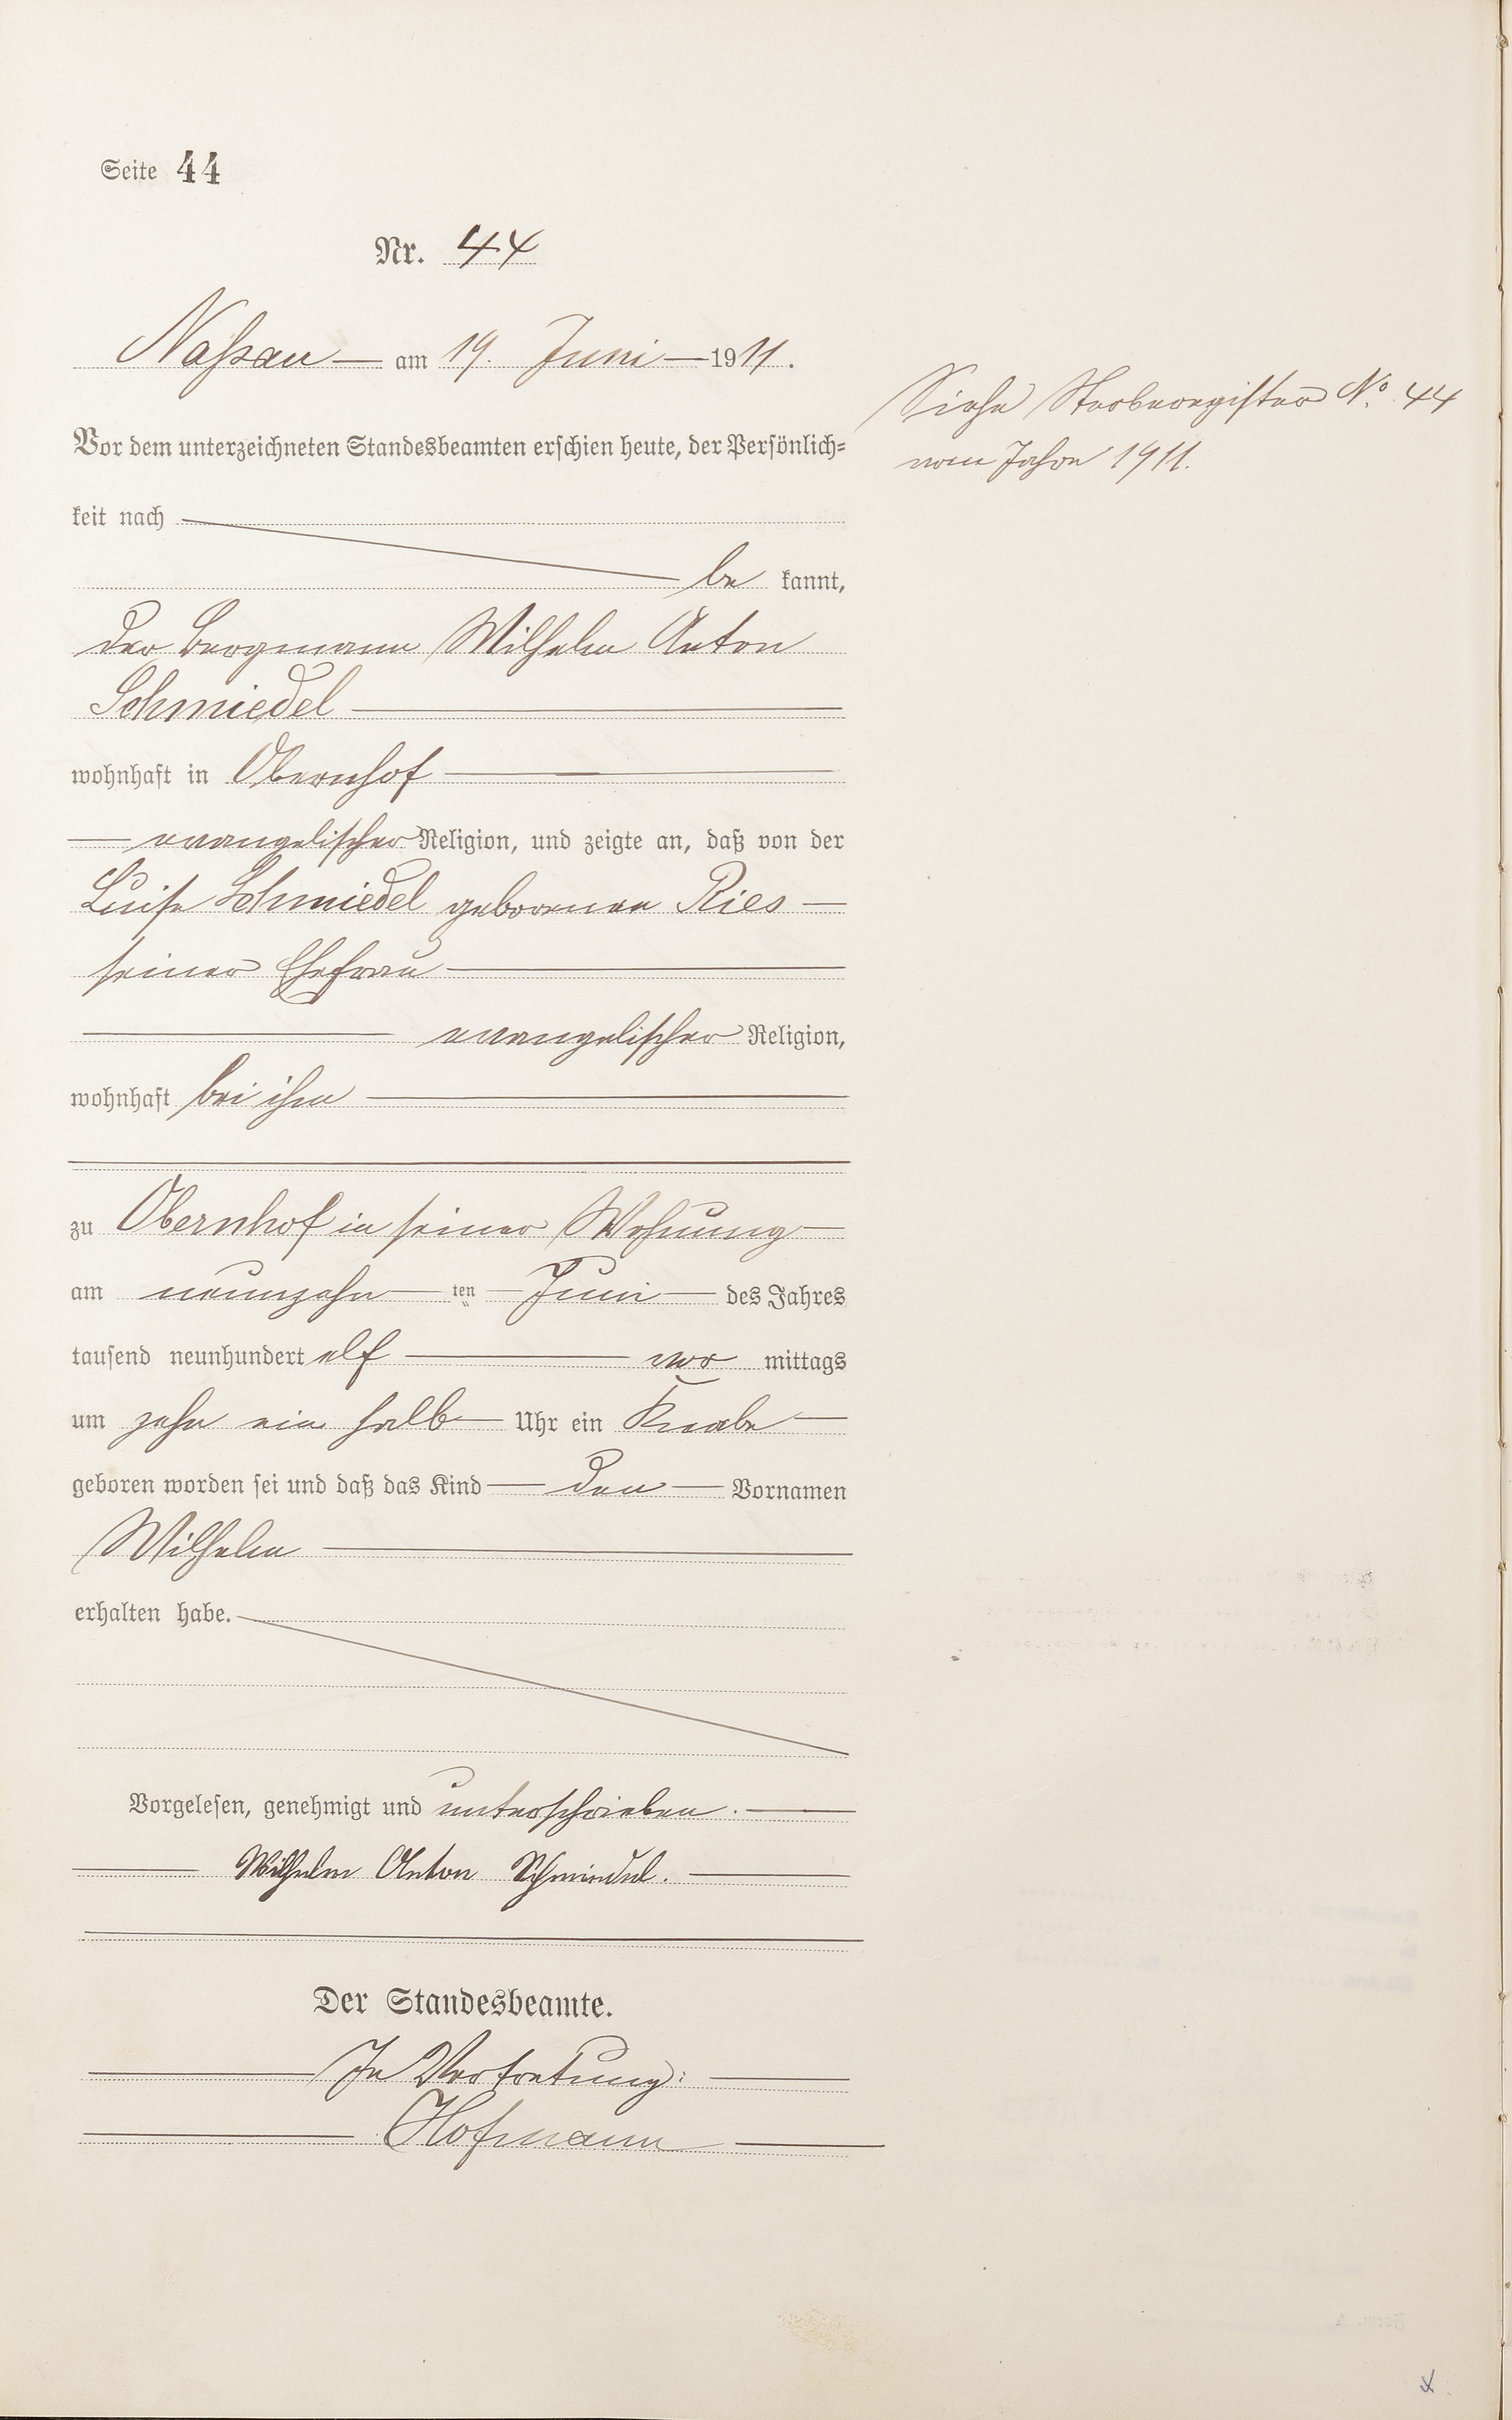 Seite 44
Nr. 44
Naßau am 19. Juni 1911.
Siehe Sterberegister No. 44
vom Jahre 1911.
Vor dem unterzeichneten Standesbeamten erschien heute, der Persönlich-
keit nach
be kannt,
der Bergmann Wilhelm Anton
Schmiedel
wohnhaft in Obernhof
evangelischer Religion, und zeigte an, daß von der
Luise Schmiedel geborenen Ries
seiner Ehefrau
evangelischer Religion,
wohnhaft bei ihm
zu Obernhof in seiner Wohnung
am neunzehn ten Juni des Jahres
tausend neunhundert elf vor mittags
um zehn ein halb Uhr ein Knabe
geboren worden sei und daß das Kind den Vornamen
Wilhelm
erhalten habe.
Vorgelesen, genehmigt und unterschrieben.
Wilhelm Anton Schmiedel.
Der Standesbeamte.
In Vertretung:
Hofmann